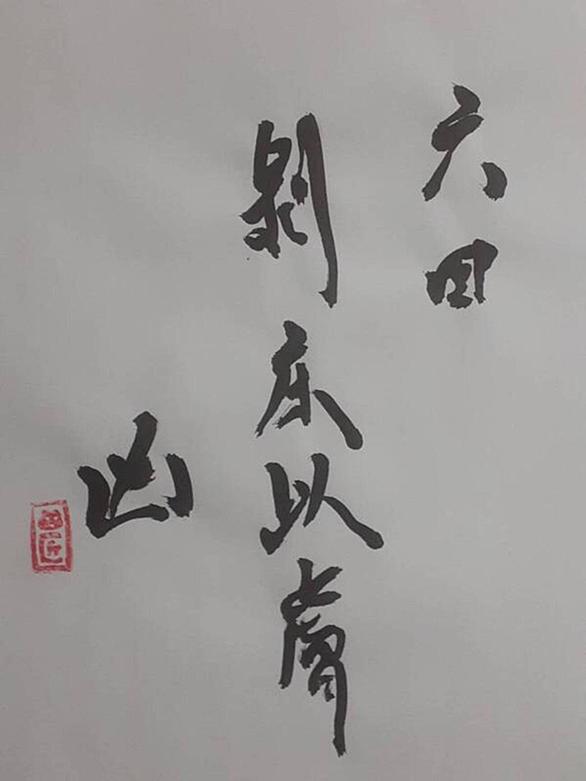 六四
剝床以膚
凶